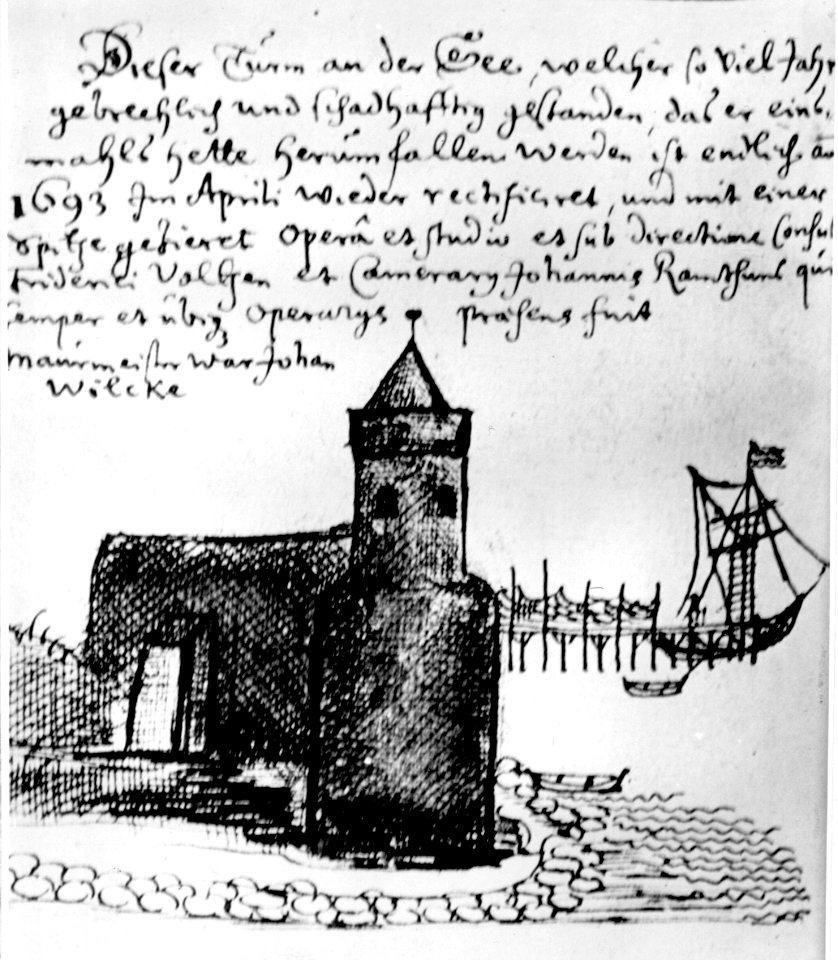 Dieser Turm an der See, welcher so viel Jahr
gebrechlich und schadhafftig gestanden, das er eins,
mahls hette herumfallen werden ist endlich an
1693 Im Aprili wieder rectificiret, und mit einer
spitze gezieret Operâ et studio et sub directione Consul
friderici et Camerary Johannis qui
semper et ubiq Operarys præsens fuit
Maurmeister war Johan
Wilcke